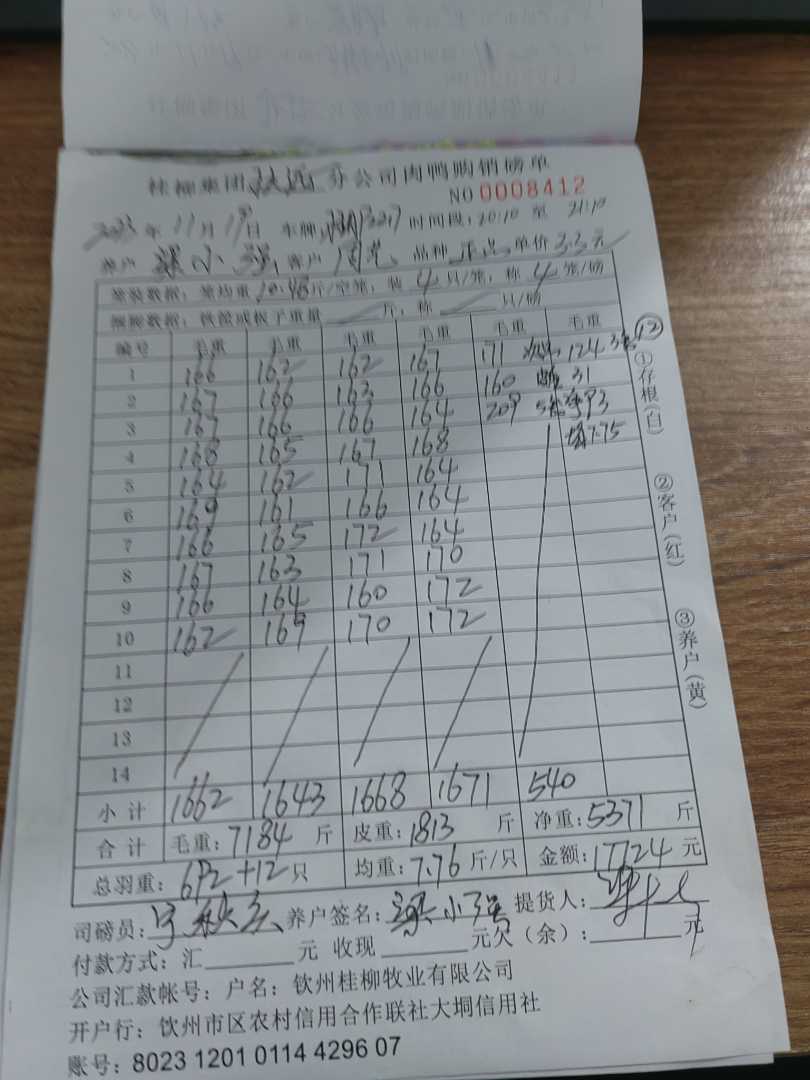 桂柳集团 分公司肉鸭购销磅单
NO 0008412
2023年11月19日 车牌 时间段:20:10 至 21:10
养户 梁小强 客户 周 品种 正点 单价3.3元
笼装数据:笼均重10.48斤/空笼,装4只/笼,称4笼/磅
斤,称 只/磅
编号 毛重 毛重 毛重 毛重 毛重 毛重
1 166 162 162 167 171 124
2 167 166 163 166 160 31
3 167 166 166 164 209 净93
4 168 165 167 168 7.75
5 164 162 171 164
6 169 161 166 164
7 166 165 172 164
8 167 163 171 170
9 166 164 160 172
10 162 169 170 172
11
12
13
14
小计 1662 1643 1668 1671 540
合计 毛重:7184 斤 皮重:1813 斤 净重:5371 斤
总羽重:692+12只 均重:7.76斤/只 金额:17724元
司磅员: 养户签名:梁小强 提货人:
付款方式:汇 元 收现 元欠(余): 元
公司汇款帐号:户名:钦州桂柳牧业有限公司
开户行:钦州市区农村信用合作联社大垌信用社
账号:8023 1201 0114 4296 07
⑫
①存根(白)
②客户(红)
③养户(黄)